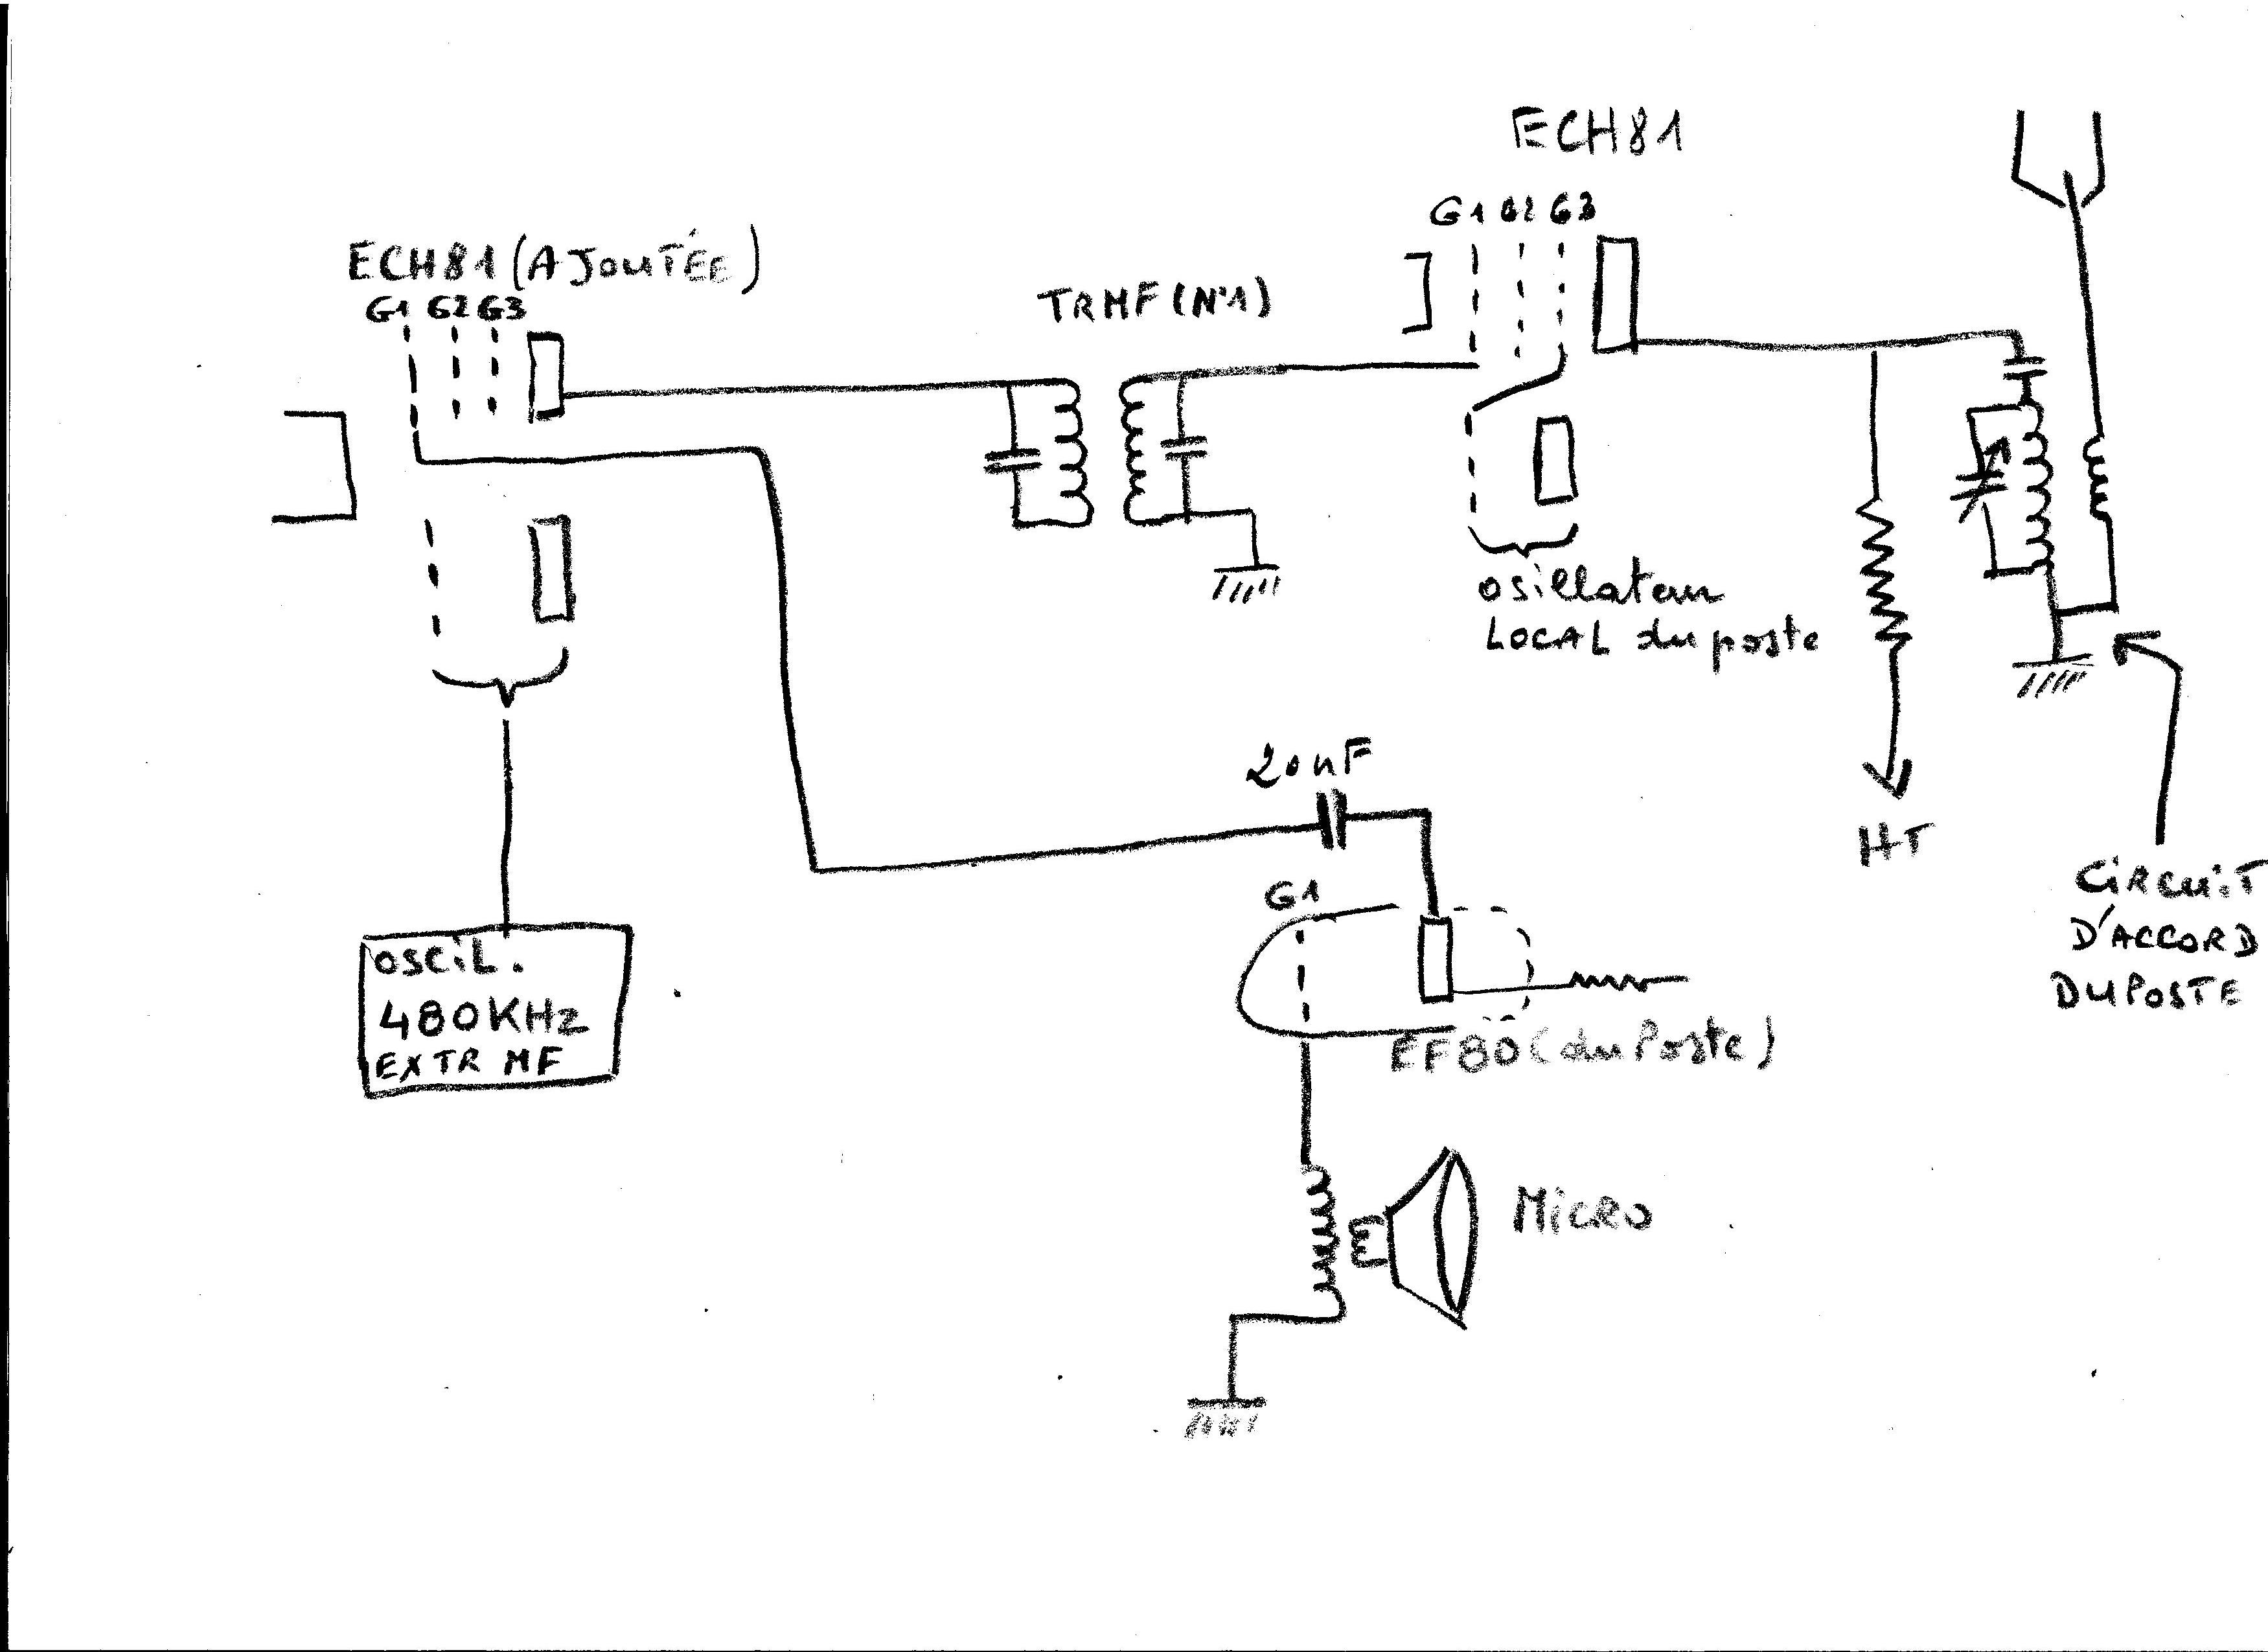 ECH81
G1 G2 G3
ECH81 (AJOUTÉE)
G1 G2 G3
TRMF (N°1)
osillateur
LOCAL du poste
20nF
HT
G1
CiRCUiT
D'ACCORD
DU POSTE
OSCiL.
480KHz
EXTR MF
EF80 (du Poste)
MiCRO